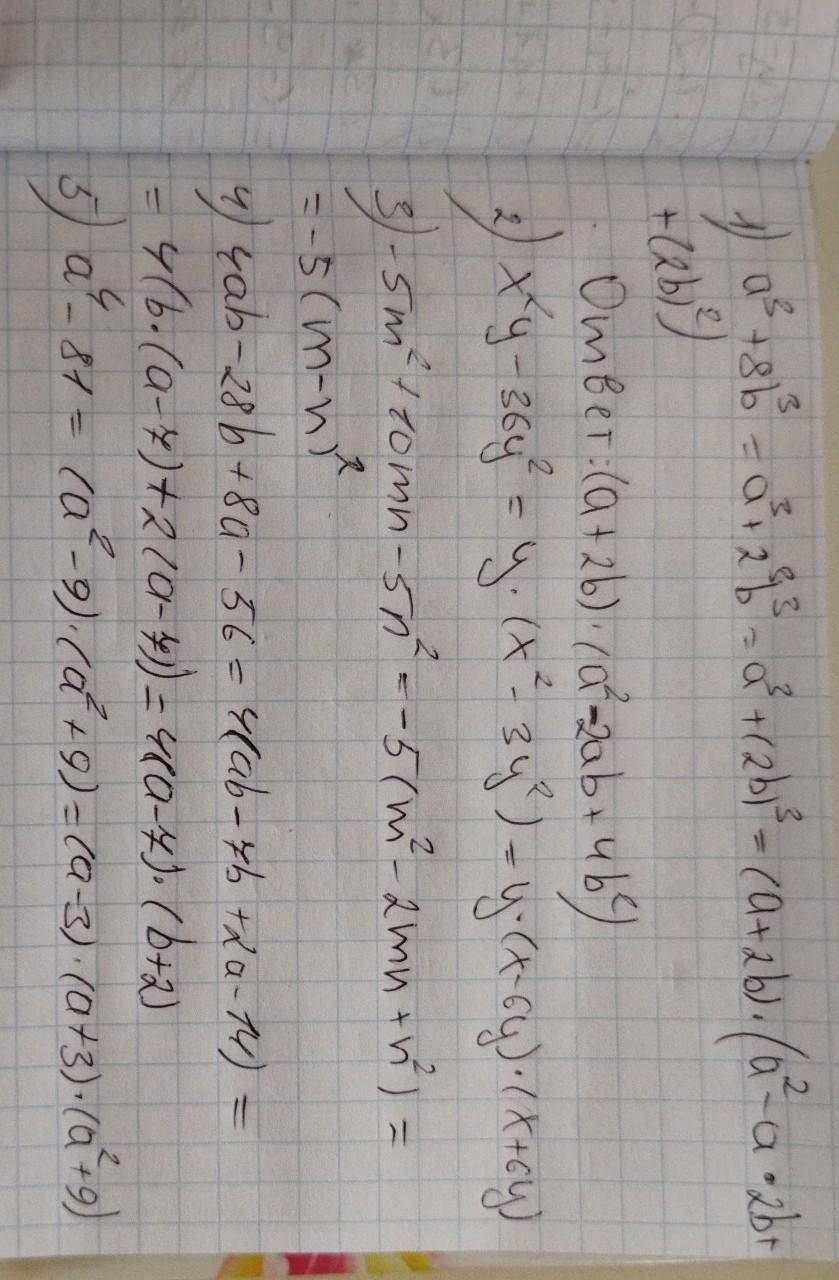 1) a³ + 8b³ = a³ + 2³b³ = a³ + (2b)³ = (a + 2b) · (a² - a · 2b +
+ (2b)²)
Ответ: (a + 2b) · (a² - 2ab + 4b²)
2) x²y - 36y² = y · (x² - 3y²) = y · (x - 6y) · (x + 6y)
3) -5m² + 10mn - 5n² = -5(m² - 2mn + n²) =
= -5(m - n)²
4) 4ab - 28b + 8a - 56 = 4(ab - 7b + 2a - 14) =
= 4(b · (a - 7) + 2(a - 7)) = 4(a - 7) · (b + 2)
5) a⁴ - 81 = (a² - 9) · (a² + 9) = (a - 3) · (a + 3) · (a² + 9)